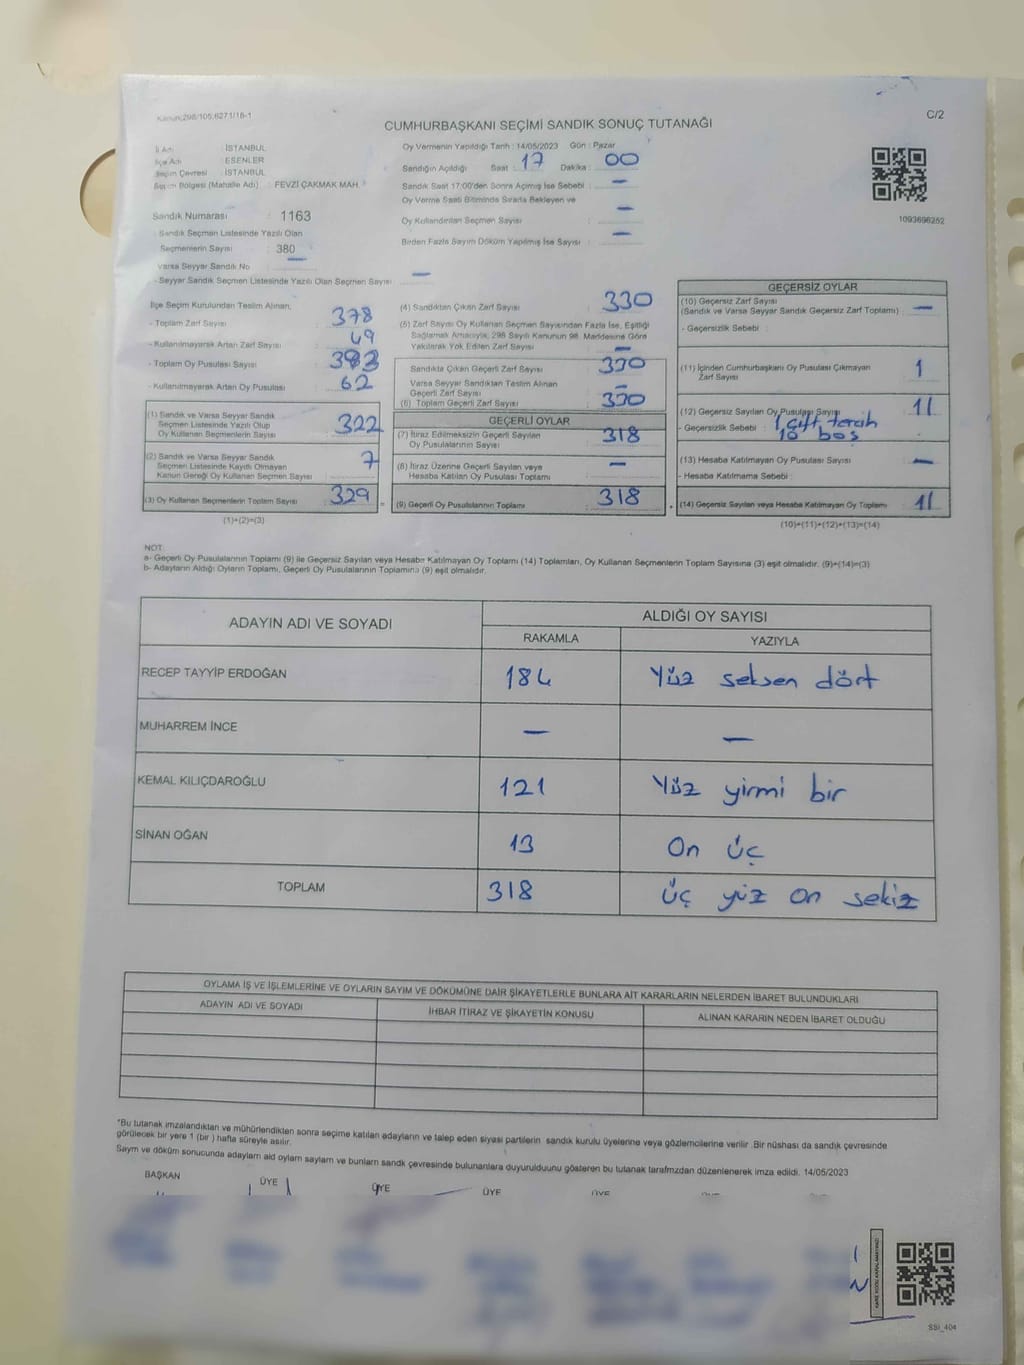 Kanun:298/105,6271/18-1
C/2
CUMHURBAŞKANI SEÇİMİ SANDIK SONUÇ TUTANAĞI
İl Adı : İSTANBUL
İlçe Adı : ESENLER
Seçim Çevresi : İSTANBUL
Seçim Bölgesi (Mahalle Adı) : FEVZİ ÇAKMAK MAH.
Sandık Numarası : 1163
Sandık Seçmen Listesinde Yazılı Olan
Seçmenlerin Sayısı : 380
Varsa Seyyar Sandık No : —
- Seyyar Sandık Seçmen Listesinde Yazılı Olan Seçmen Sayısı : —
Oy Vermenin Yapıldığı Tarih : 14/05/2023 Gün : Pazar
Sandığın Açıldığı Saat : 17 Dakika : 00
Sandık Saat 17:00'den Sonra Açılmış İse Sebebi : —
Oy Verme Saati Bitiminde Sırada Bekleyen ve
Oy Kullandırılan Seçmen Sayısı : —
Birden Fazla Sayım Döküm Yapılmış İse Sayısı : —
1093696252
İlçe Seçim Kurulundan Teslim Alınan;
- Toplam Zarf Sayısı : 378
- Kullanılmayarak Artan Zarf Sayısı : 49
- Toplam Oy Pusulası Sayısı :
- Kullanılmayarak Artan Oy Pusulası : 62
(1) Sandık ve Varsa Seyyar Sandık
Seçmen Listesinde Yazılı Olup
Oy Kullanan Seçmenlerin Sayısı : 322
(2) Sandık ve Varsa Seyyar Sandık
Seçmen Listesinde Kayıtlı Olmayan
Kanun Gereği Oy Kullanan Seçmen Sayısı : 7
(3) Oy Kullanan Seçmenlerin Toplam Sayısı : 329
(1)+(2)=(3)
(4) Sandıktan Çıkan Zarf Sayısı : 330
(5) Zarf Sayısı Oy Kullanan Seçmen Sayısından Fazla İse, Eşitliği
Sağlamak Amacıyla; 298 Sayılı Kanunun 98. Maddesine Göre
Yakılarak Yok Edilen Zarf Sayısı : —
Sandıkta Çıkan Geçerli Zarf Sayısı : 330
Varsa Seyyar Sandıktan Teslim Alınan
Geçerli Zarf Sayısı : —
(6) Toplam Geçerli Zarf Sayısı : 330
GEÇERLİ OYLAR
(7) İtiraz Edilmeksizin Geçerli Sayılan
Oy Pusulalarının Sayısı : 318
(8) İtiraz Üzerine Geçerli Sayılan veya
Hesaba Katılan Oy Pusulası Toplamı : —
(9) Geçerli Oy Pusulalarının Toplamı : 318
GEÇERSİZ OYLAR
(10) Geçersiz Zarf Sayısı
(Sandık ve Varsa Seyyar Sandık Geçersiz Zarf Toplamı) : —
- Geçersizlik Sebebi :
(11) İçinden Cumhurbaşkanı Oy Pusulası Çıkmayan
Zarf Sayısı : 1
(12) Geçersiz Sayılan Oy Pusulası Sayısı : 11
- Geçersizlik Sebebi : 1 çift tercih
10 boş
(13) Hesaba Katılmayan Oy Pusulası Sayısı : —
- Hesaba Katılmama Sebebi :
(14) Geçersiz Sayılan veya Hesaba Katılmayan Oy Toplamı : 11
(10)+(11)+(12)+(13)=(14)
NOT:
a- Geçerli Oy Pusulalarının Toplamı (9) ile Geçersiz Sayılan veya Hesaba Katılmayan Oy Toplamı (14) Toplamları, Oy Kullanan Seçmenlerin Toplam Sayısına (3) eşit olmalıdır. (9)+(14)=(3)
b- Adayların Aldığı Oyların Toplamı, Geçerli Oy Pusulalarının Toplamına (9) eşit olmalıdır.
ADAYIN ADI VE SOYADI
ALDIĞI OY SAYISI
RAKAMLA YAZIYLA
RECEP TAYYİP ERDOĞAN 184 Yüz seksen dört
MUHARREM İNCE — —
KEMAL KILIÇDAROĞLU 121 Yüz yirmi bir
SİNAN OĞAN 13 On üç
TOPLAM 318 üç yüz on sekiz
OYLAMA İŞ VE İŞLEMLERİNE VE OYLARIN SAYIM VE DÖKÜMÜNE DAİR ŞİKAYETLERLE BUNLARA AİT KARARLARIN NELERDEN İBARET BULUNDUKLARI
ADAYIN ADI VE SOYADI İHBAR İTİRAZ VE ŞİKAYETİN KONUSU ALINAN KARARIN NEDEN İBARET OLDUĞU
*Bu tutanak imzalandıktan ve mühürlendikten sonra seçime katılan adayların ve talep eden siyasi partilerin sandık kurulu üyelerine veya gözlemcilerine verilir. Bir nüshası da sandık çevresinde
görülecek bir yere 1 (bir) hafta süreyle asılır.
Sayım ve döküm sonucunda adayların aldı oyların sayları ve bunların sandık çevresinde bulunanlara duyurulduunu gösteren bu tutanak tarafımzdan düzenlenerek imza edildi. 14/05/2023
BAŞKAN ÜYE ÜYE ÜYE ÜYE
SSI_404